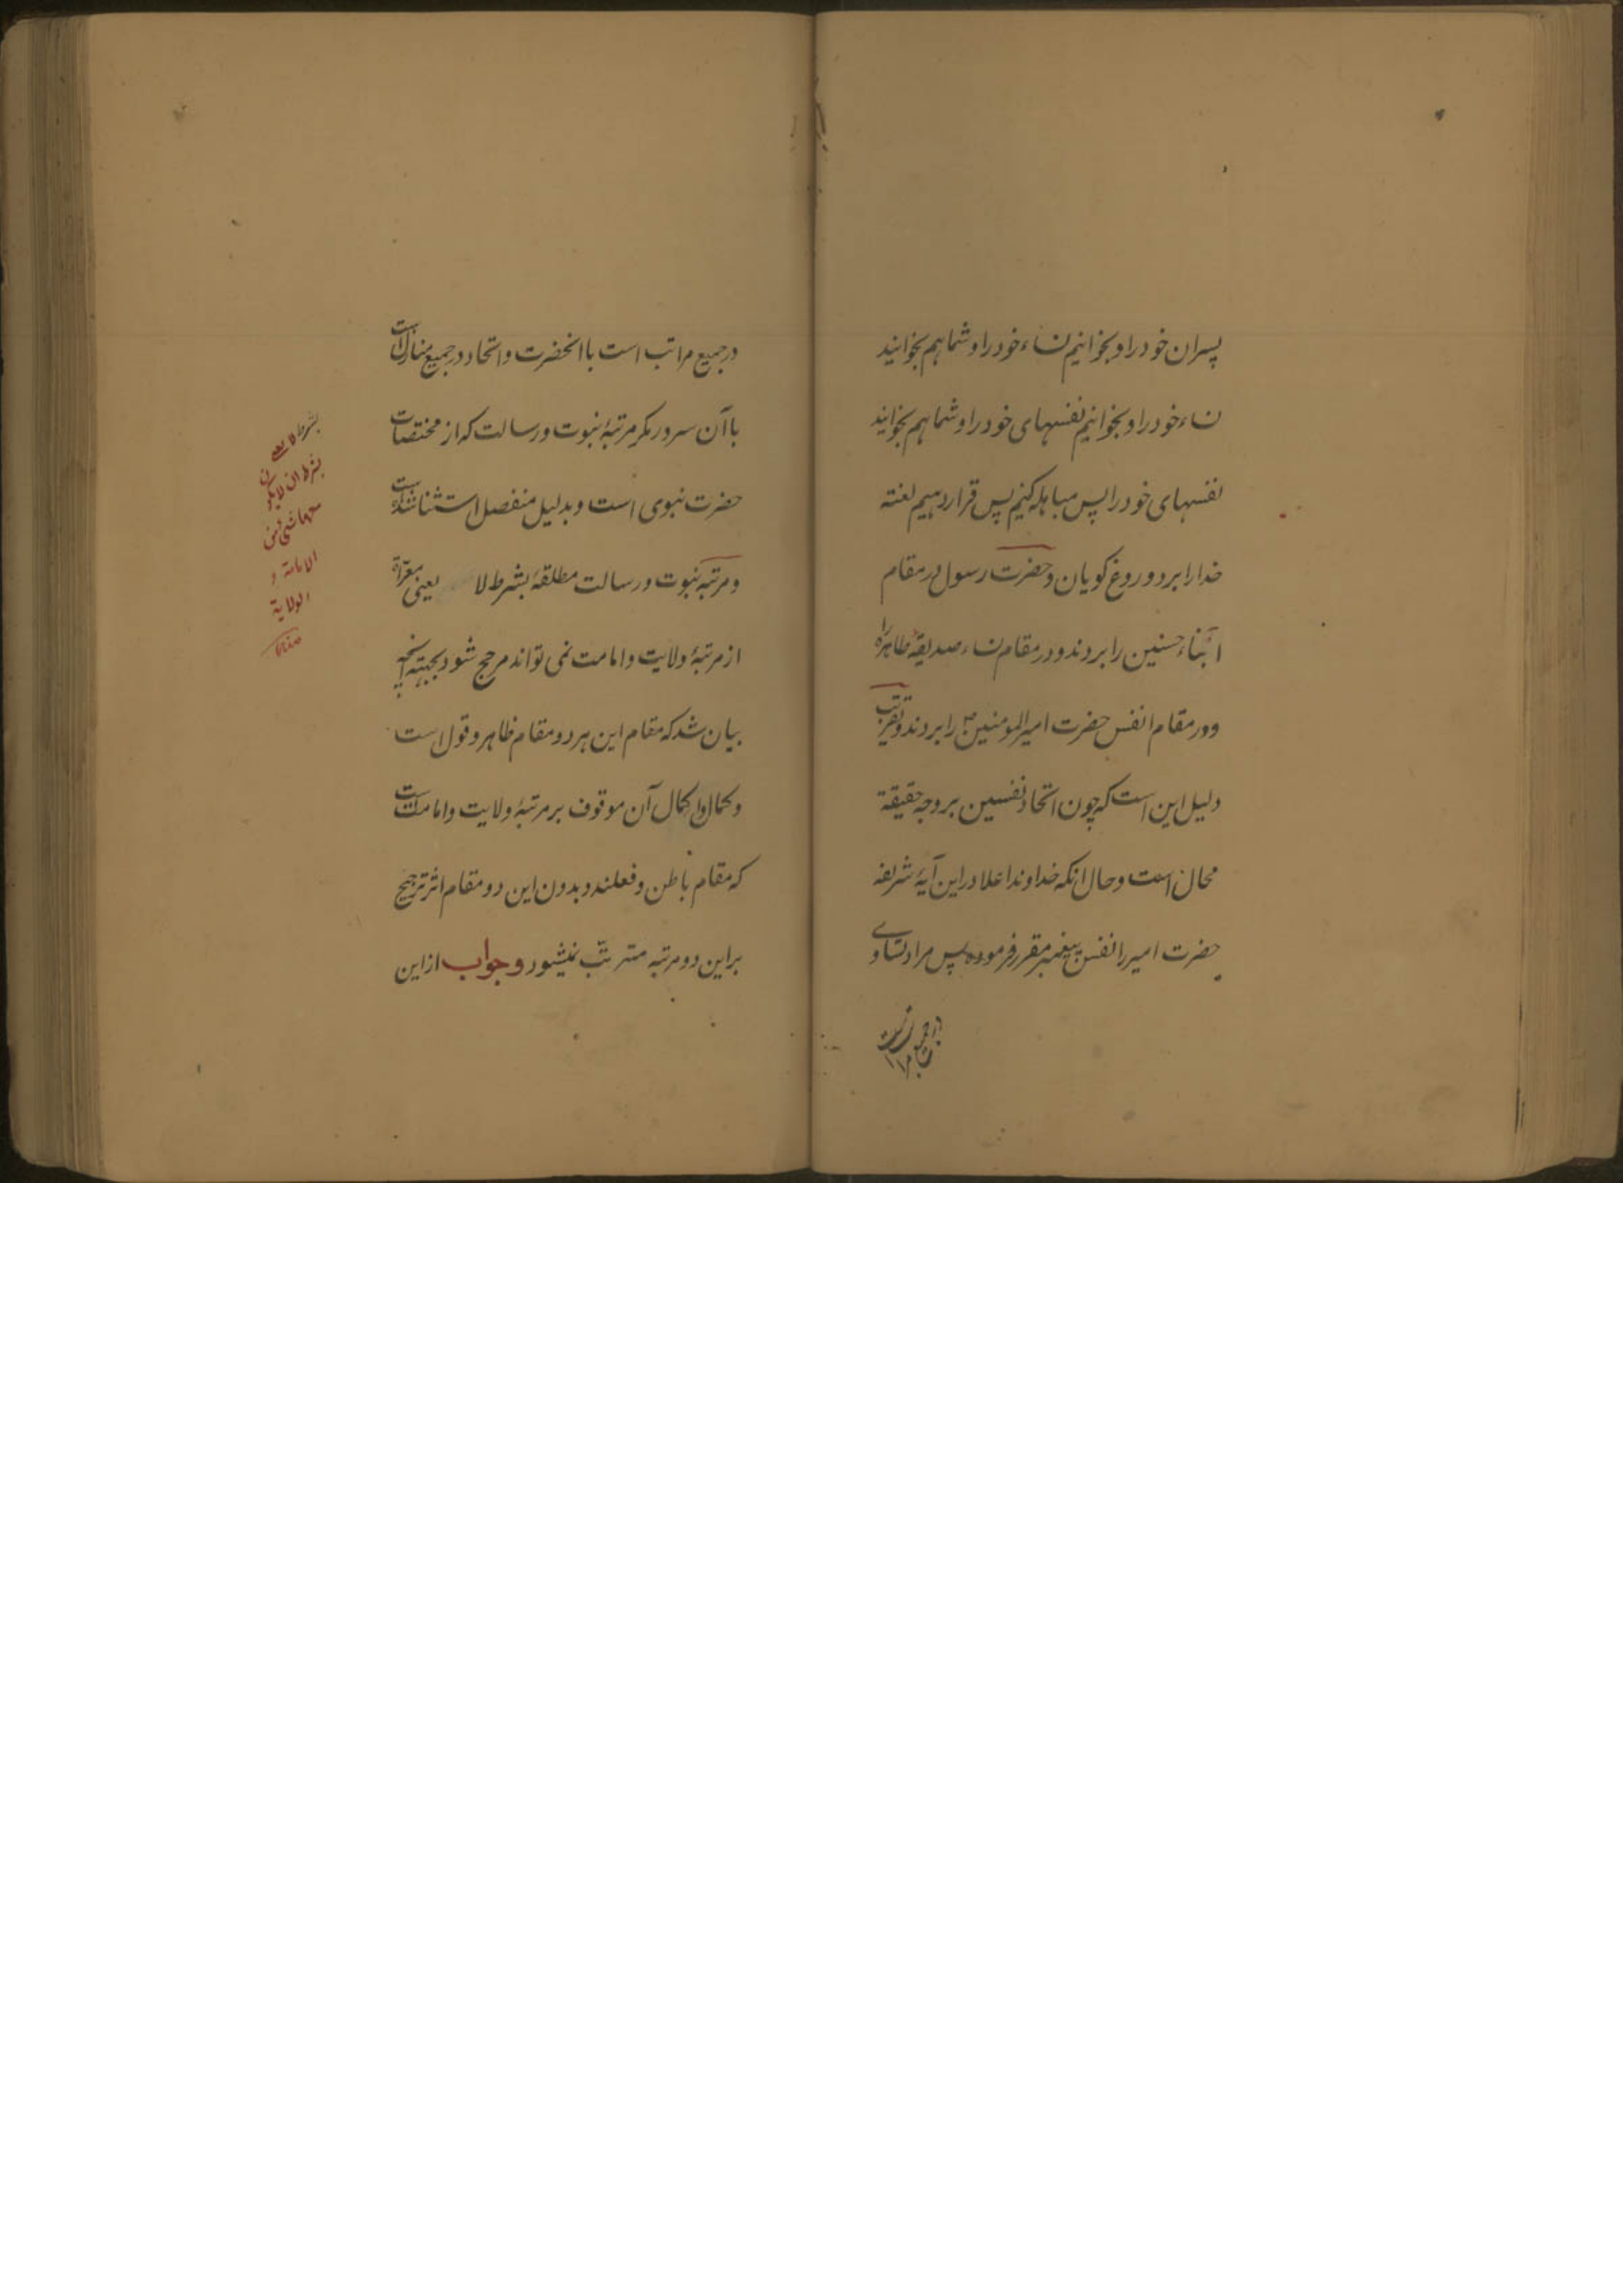 پسران خود را و بخوانیم نساء خود را و شما هم بخوانید
نساء خود را و بخوانیم نفسهای خود را و شما هم بخوانید
نفسهای خود را پس مباهله کنیم پس قرار دهیم لعنته
خدا را بر دروغ کویان و حضرت رسول در مقام
ابناء حسنین را بردند و در مقام نساء صدیقهٔ طاهره را
و در مقام انفس حضرت امیرالمومنین را بردند و تقریب
دلیل این است که چون اتحاد نفسین بر وجه حقیقة
محال است و حال انکه خداوند اعلا در این آیهٔ شریفه
حضرت امیر را نفس پیغمبر مقرر فرموده پس مراد تساوی
در جمیع مراتب است با انحضرت و اتحاد در جمیع منازل است
با آن سرور مکر مرتبهٔ نبوت و رسالت که از مختصات
حضرت نبوی است و بدلیل منفصل استثنا شده است
و مرتبهٔ نبوت و رسالت مطلقهٔ بشرط لا یعنی معرّاة
از مرتبهٔ ولایت و امامت نمی تواند مرجح شود بجهته آنچه
بیان شد که مقام این هر دو مقام ظاهر و قول است
و کمال و اکمال آن موقوف بر مرتبهٔ ولایت و امامت است
که مقام باطن و فعلند و بدون این دو مقام اثر ترجیح
بر این دو مرتبه مترتّب نمیشود و جواب از این
بشرط لا یعنی
بشرط ان لا یکون
معهما شئ من
الامامة و
الولایة
منه